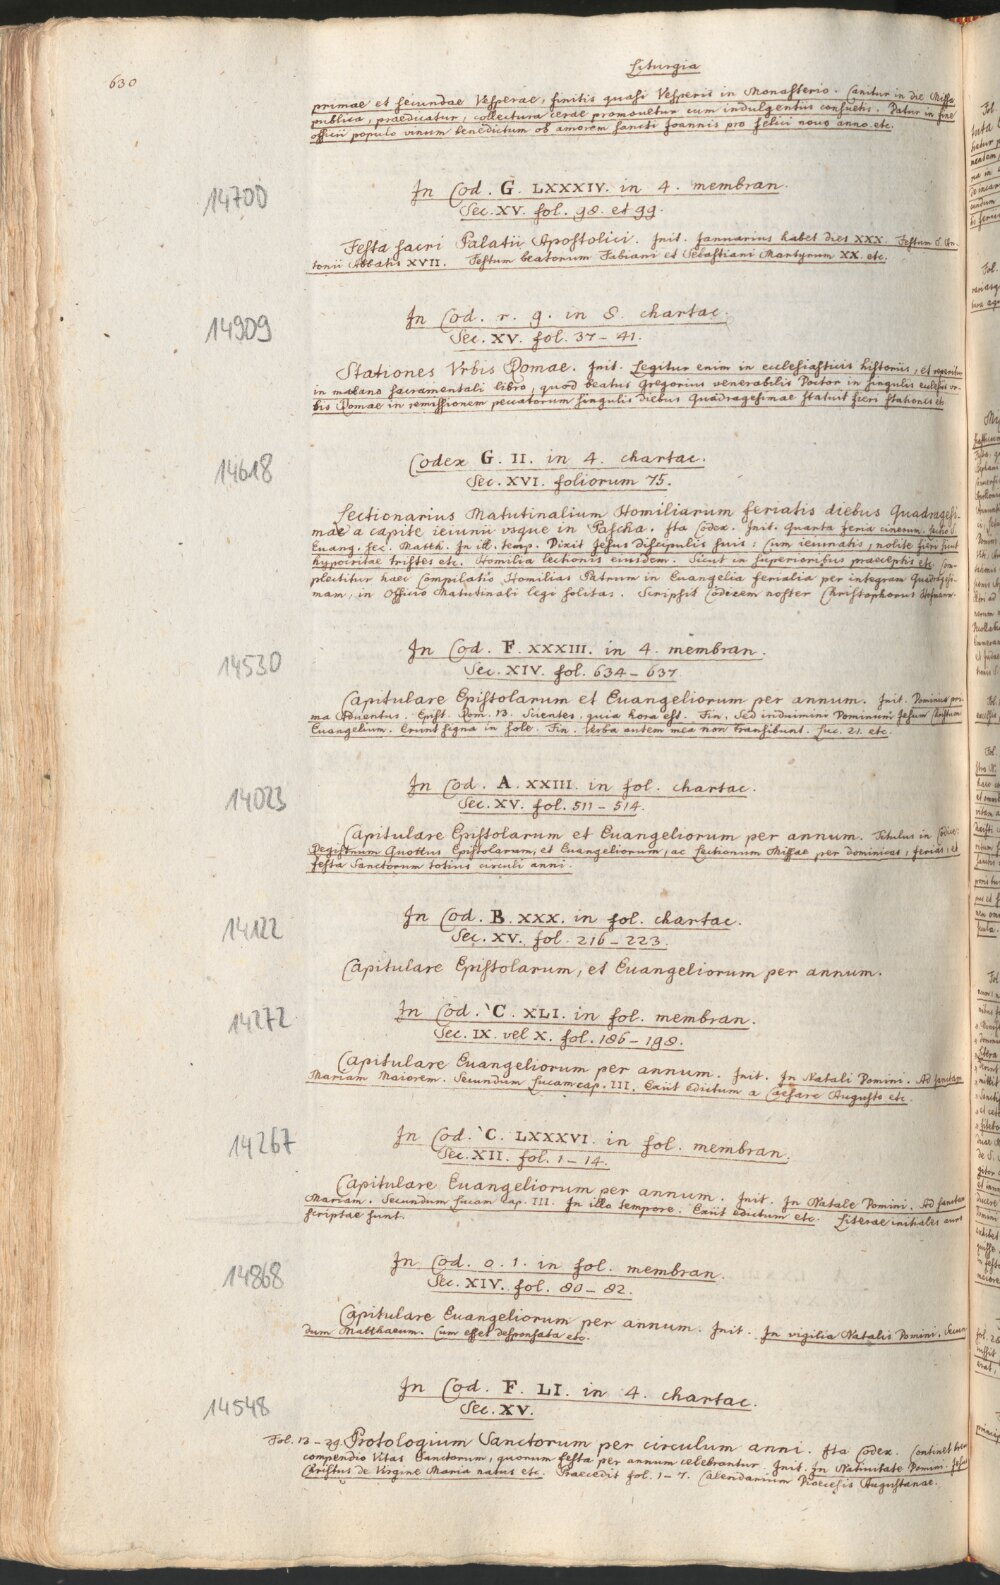 630
Liturgia
primae et secundae Vesperae, finitis quasi Vesperis in Monasterio. Canitur in die Missa
publica, praedicatur, collectura cerae promovetur cum indulgentiis consuetis. Datur in fine
officii populo vinum benedictum ob amorem sancti Joannis pro felici novo anno etc.
14700
In Cod. G. LXXXIV. in 4. membran.
Sec. XV. fol. 98. et 99.
Festa sacri Palatii Apostolici. Init. Januarius habet dies XXX. Festum S. An-
tonii Abbatis XVII. Festum beatorum Fabiani et Sebastiani Martyrum XX. etc.
14909
In Cod. r. g. in 8. chartac.
Sec. XV. fol. 37 – 41.
Stationes Vrbis Romae. Init. Legitur enim in ecclesiasticis historiis, et reperitur
in sacramentali libro, quod beatus Gregorius venerabilis Doctor in singulis ecclesiis vr-
bis Romae in remissionem peccatorum singulis diebus Quadragesimae statuit fieri stationes etc
14618
Codex G. II. in 4. chartac.
Sec. XVI. foliorum 75.
Lectionarius Matutinalium Homiliarum feriatis diebus Quadragesi-
mae a capite ieiunii vsque in Pascha. Ita Codex. Init. Quarta feria cinerum. Lectio S.
Euang. sec. Matth. In ill. temp. Dixit Jesus discipulis suis: Cum ieiunatis, nolite fieri sicut
hypocritae tristes etc. Homilia lectionis eiusdem. Sicut in superioribus praeceptis etc. Com-
plectitur haec Compilatio Homilias Patrum in Euangelia ferialia per integram Quadragesi-
mam, in Officio Matutinali legi solitas. Scripsit Codicem noster Christophorus Hofmann.
14530
In Cod. F. XXXIII. in 4. membran.
Sec. XIV. fol. 634 – 637
Capitulare Epistolarum et Euangeliorum per annum. Init. Dominica pri-
ma Aduentus. Epist. Rom. 13. Scientes, quia hora est. Fin. Sed induimini Dominum Jesum Christum
Euangelium. Erunt signa in sole. Fin. Verba autem mea non transibunt. Luc. 21. etc.
14023
In Cod. A. XXIII. in fol. chartac.
Sec. XV. fol. 511 – 514.
Capitulare Epistolarum et Euangeliorum per annum. Titulus in Codice:
Registrum Quottus Epistolarum, et Euangeliorum, ac Lectionum Missae per dominicas, ferias, et
festa Sanctorum totius circuli anni.
14122
In Cod. B. XXX. in fol. chartac.
Sec. XV. fol. 216 – 223.
Capitulare Epistolarum, et Euangeliorum per annum.
14272
In Cod. C. XLI. in fol. membran.
Sec. IX. vel X. fol. 186 – 198.
Capitulare Euangeliorum per annum. Init. In Natali Domini. Ad sanctam
Mariam Maiorem. Secundum Lucam cap. III. Exiit edictum a Caesare Augusto etc.
14267
In Cod. C. LXXXVI. in fol. membran.
Sec. XII. fol. 1 – 14.
Capitulare Euangeliorum per annum. Init. In Natale Domini. Ad sanctam
Mariam. Secundum Lucam cap. III. In illo tempore. Exiit edictum etc. Literae initiales auro
scriptae sunt.
14868
In Cod. o. 1. in fol. membran.
Sec. XIV. fol. 80 – 82.
Capitulare Euangeliorum per annum. Init. In vigilia Natalis Domini. Secun-
dum Matthaeum. Cum esset desponsata etc.
14548
In Cod. F. LI. in 4. chartac.
Sec. XV.
Fol. 12 – 29. Protologium Sanctorum per circulum anni. Ita Codex. Continet
compendio Vitas Sanctorum, quorum festa per annum celebrantur. Init. In Natiuitate Domini. Jesus
Christus de Virgine Maria natus etc. Praecedit fol. 1 – 7. Calendarium Dioecesis Augustanae.